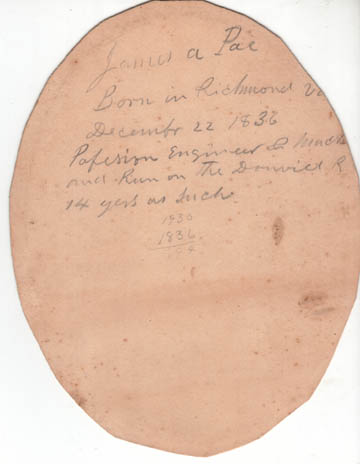 James A Pae
Born in Richmond Va
December 22 1836
Pofesion Engineer &
and Run on the Danviel R
14 yers as Such
1930
1836